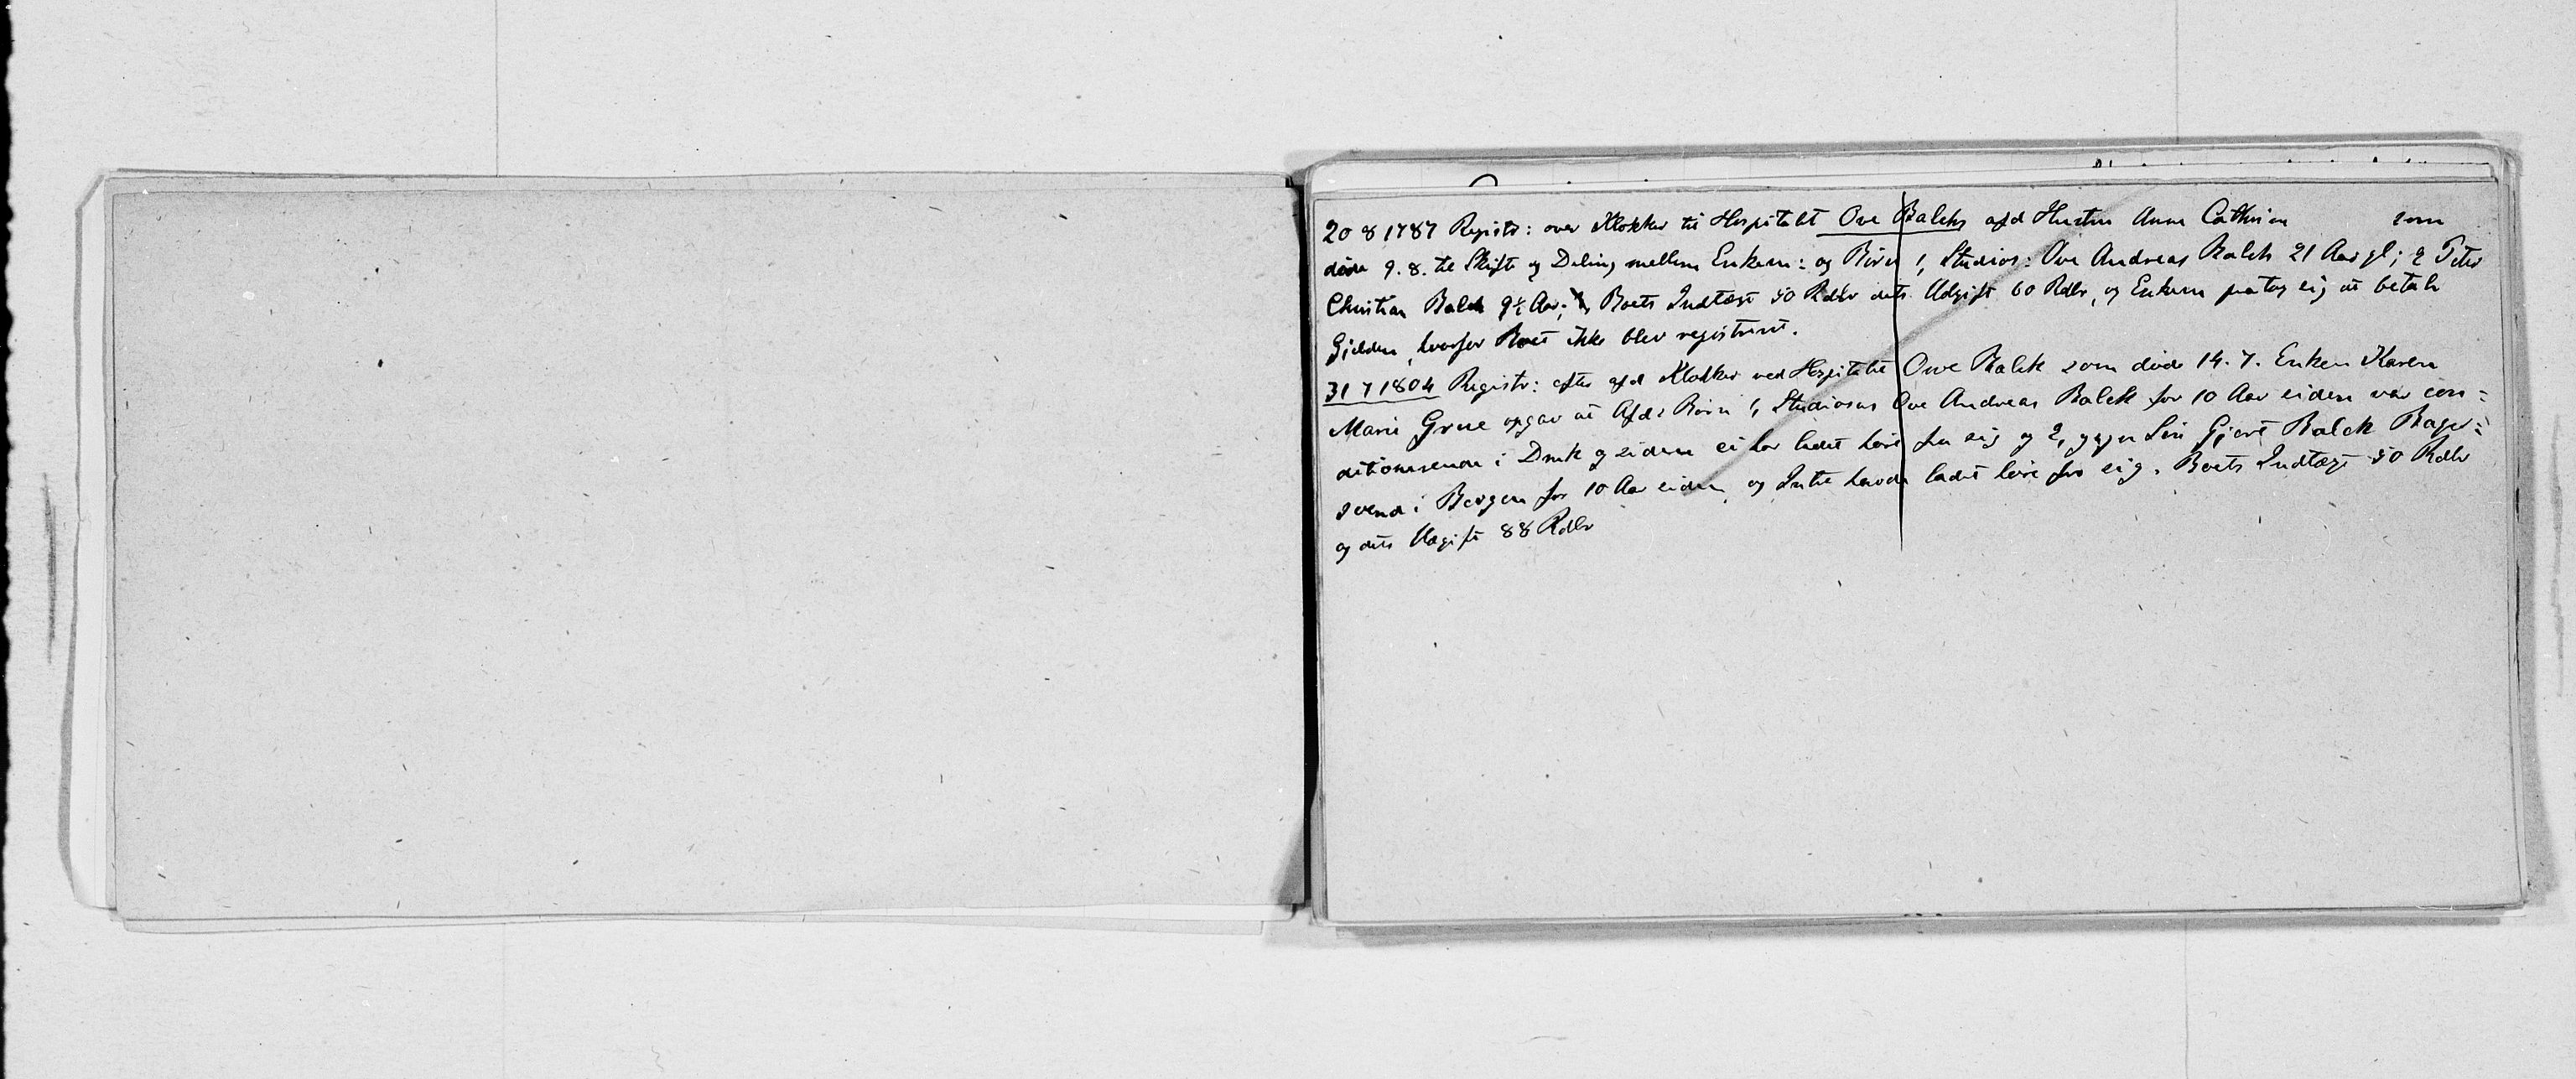 20 8 1787 Registr: over Klokker til Hospitalet Ove Balchs afd Hustru Anna Cathrina som
døde 9. 8. til Skifte og Deling mellem Enkem: og Børn 1, Studios: Ove Andreas Balch 21 Aar gl; 2 Peter
Christian Balch 9½ Aar; Boets Indtægt 50 Rdlr dets Udgift 60 Rdlr, og Enkem patog sig at betale
Gjelden, hvorfor Boet ikke blev registreret.
31 7 1804 Registr: efter afd Klokker ved Hospitalet Ove Balck som døde 14. 7. Enken Karen
Marie Grue opgav at Afd: Børn 1, Studiosus Ove Andreas Balck for 10 Aar siden var con-
ditionerende i Dmk og siden ei har ladet høre fra sig og 2, yngre Søn Gjert Balck Bager-
svend i Bergen for 10 Aar siden og Intet havde ladet høre fra sig. Boets Indtægt 50 Rdlr
og dets Udgift 88 Rdlr